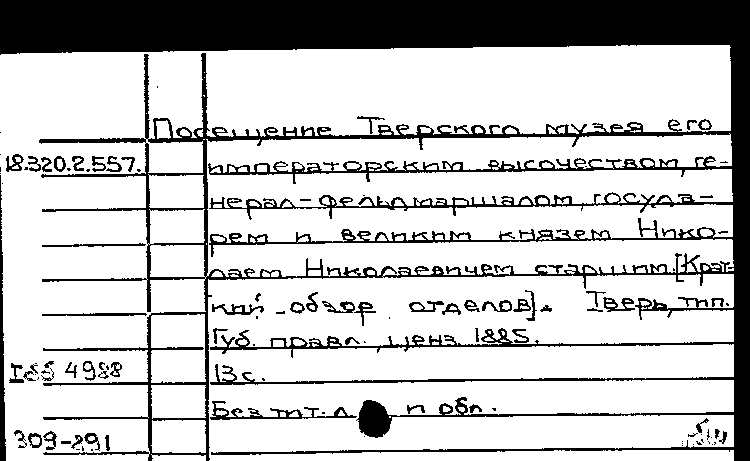 Посещение Тверского музея его
18.320.2.557. императорским высочеством, ге-
нерал-фельдмаршалом, госуда-
рем и великим князем Нико-
лаем Николаевичем старшим.[Крат-
кий обзор отделов]. Тверь, тип.
Губ. правл., ценз 1885.
Iбб 4988 13 с.
Без тит. л и обл.
309-891